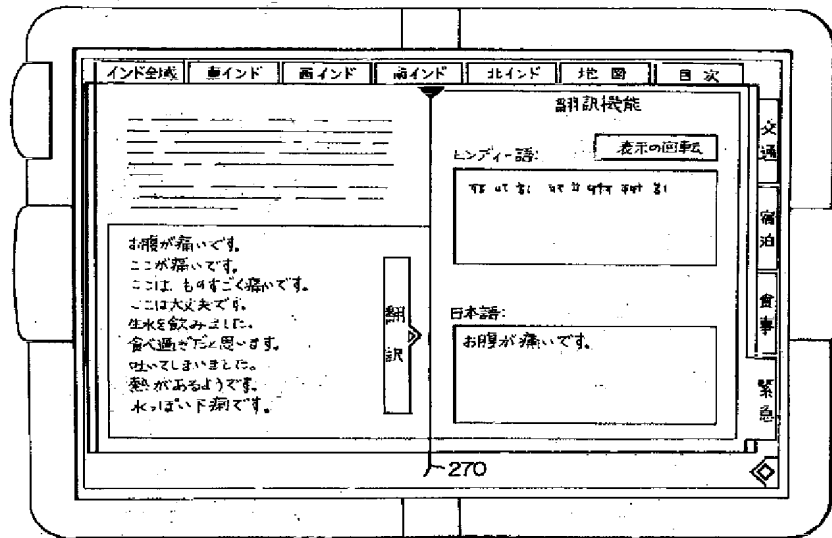 インド全域 東インド 西インド 南インド 北インド 地図 目次
翻訳機能
ヒンディー語:
表示の回転
お腹が痛いです。
ここが痛いです。
ここは、ものすごく痛いです。
ここは大丈夫です。
生水を飲みました。
食べ過ぎだと思います。
吐いてしまいました。
熱があるようです。
水っぽい下痢です。
翻訳
日本語:
お腹が痛いです。
交通
宿泊
食事
緊急
270